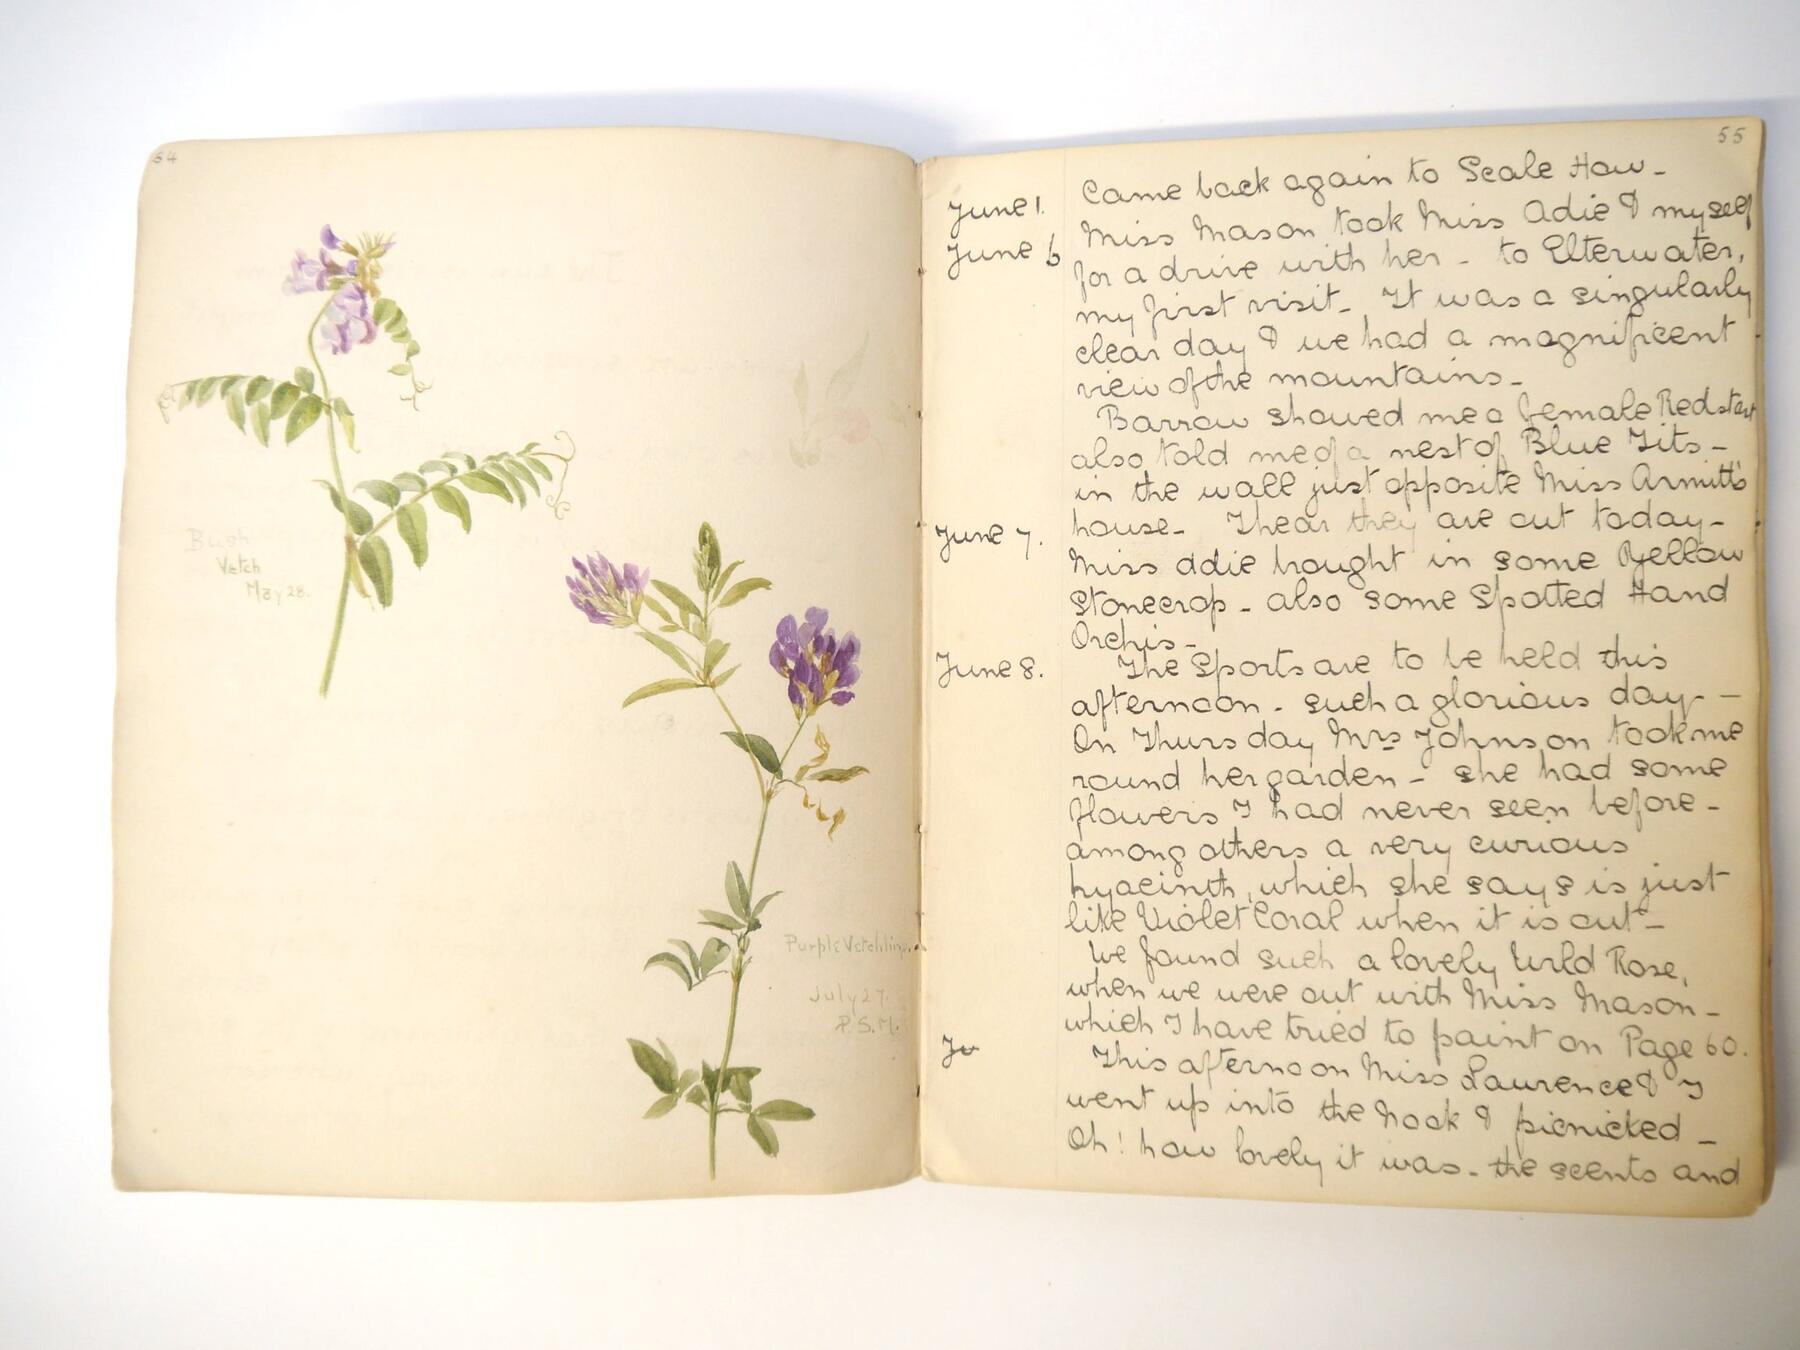 54
Bush
Vetch
May 28.
Purple Vetchling.
July 27.
P.S.M.
55
June 1. Came back again to Scale How -
June 6 Miss Mason took Miss Adie & myself
for a drive with her - to Elterwater,
my first visit - It was a singularly
clear day & we had a magnificent
view of the mountains -
Barrow showed me a female Redstart
also told me of a nest of Blue Tits -
in the wall just opposite Miss Armitt's
house - I hear they are out today -
June 7. Miss Adie bought in some Yellow
Stonecrop - also some Spotted Hand
Orchis -
June 8. The Sports are to be held this
afternoon - such a glorious day -
On Thursday Mrs Johnson took me
round her garden - she had some
flowers I had never seen before -
among others a very curious
hyacinth, which she says is just
like Violet Coral when it is out -
We found such a lovely Wild Rose,
when we were out with Miss Mason -
which I have tried to paint on Page 60.
Ju This afternoon Miss Laurence & I
went up into the Nook & picnicked -
Oh! how lovely it was - the scents and